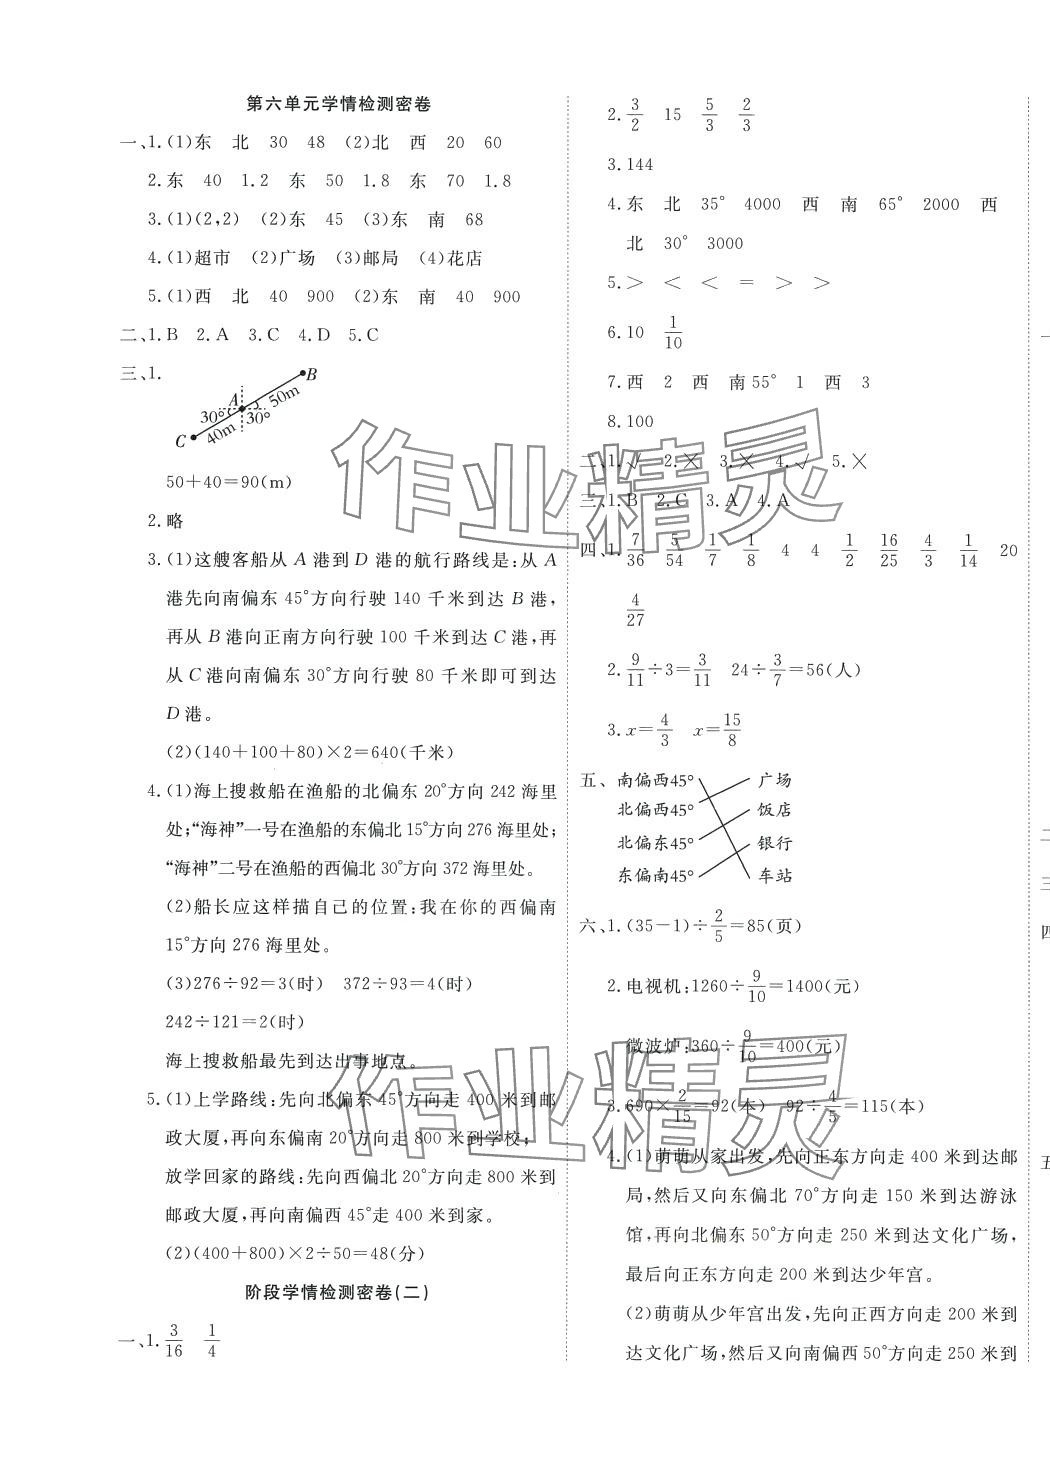 第六单元学情检测密卷
一、1.(1)东 北 30 48 (2)北 西 20 60
2.东 40 1.2 东 50 1.8 东 70 1.8
3.(1)(2,2) (2)东 45 (3)东 南 68
4.(1)超市 (2)广场 (3)邮局 (4)花店
5.(1)西 北 40 900 (2)东 南 40 900
二、1.B 2.A 3.C 4.D 5.C
三、1.
B
A
50m
30°
30°
C
40m
50+40=90(m)
2.略
3.(1)这艘客船从 A 港到 D 港的航行路线是:从 A
港先向南偏东 45°方向行驶 140 千米到达 B 港,
再从 B 港向正南方向行驶 100 千米到达 C 港,再
从 C 港向南偏东 30°方向行驶 80 千米即可到达
D 港。
(2)(140+100+80)×2=640(千米)
4.(1)海上搜救船在渔船的北偏东 20°方向 242 海里
处;“海神”一号在渔船的东偏北 15°方向 276 海里处;
“海神”二号在渔船的西偏北 30°方向 372 海里处。
(2)船长应这样描自己的位置:我在你的西偏南
15°方向 276 海里处。
(3)276÷92=3(时) 372÷93=4(时)
242÷121=2(时)
海上搜救船最先到达出事地点。
5.(1)上学路线:先向北偏东 45°方向走 400 米到邮
政大厦,再向东偏南 20°方向走 800 米到学校;
放学回家的路线:先向西偏北 20°方向走 800 米到
邮政大厦,再向南偏西 45°走 400 米到家。
(2)(400+800)×2÷50=48(分)
阶段学情检测密卷(二)
一、1. 3/16 1/4
2. 3/2 15 5/3 2/3
3.144
4.东 北 35° 4000 西 南 65° 2000 西
北 30° 3000
5.> < < = > >
6.10 1/10
7.西 2 西 南55° 1 西 3
8.100
二、1.√ 2.× 3.× 4.√ 5.×
三、1.B 2.C 3.A 4.A
四、1. 7/36 5/54 1/7 1/8 4 4 1/2 16/25 4/3 1/14 20
4/27
2. 9/11÷3=3/11 24÷3/7=56(人)
3. x=4/3 x=15/8
五、南偏西45° 广场
北偏西45° 饭店
北偏东45° 银行
东偏南45° 车站
六、1.(35-1)÷2/5=85(页)
2.电视机:1260÷9/10=1400(元)
微波炉:360÷9/10=400(元)
3.690×2/15=92(本) 92÷4/5=115(本)
4.(1)萌萌从家出发,先向正东方向走 400 米到达邮
局,然后又向东偏北 70°方向走 150 米到达游泳
馆,再向北偏东 50°方向走 250 米到达文化广场,
最后向正东方向走 200 米到达少年宫。
(2)萌萌从少年宫出发,先向正西方向走 200 米到
达文化广场,然后又向南偏西 50°方向走 250 米到
作业精灵
作业精灵
二
三
四
五